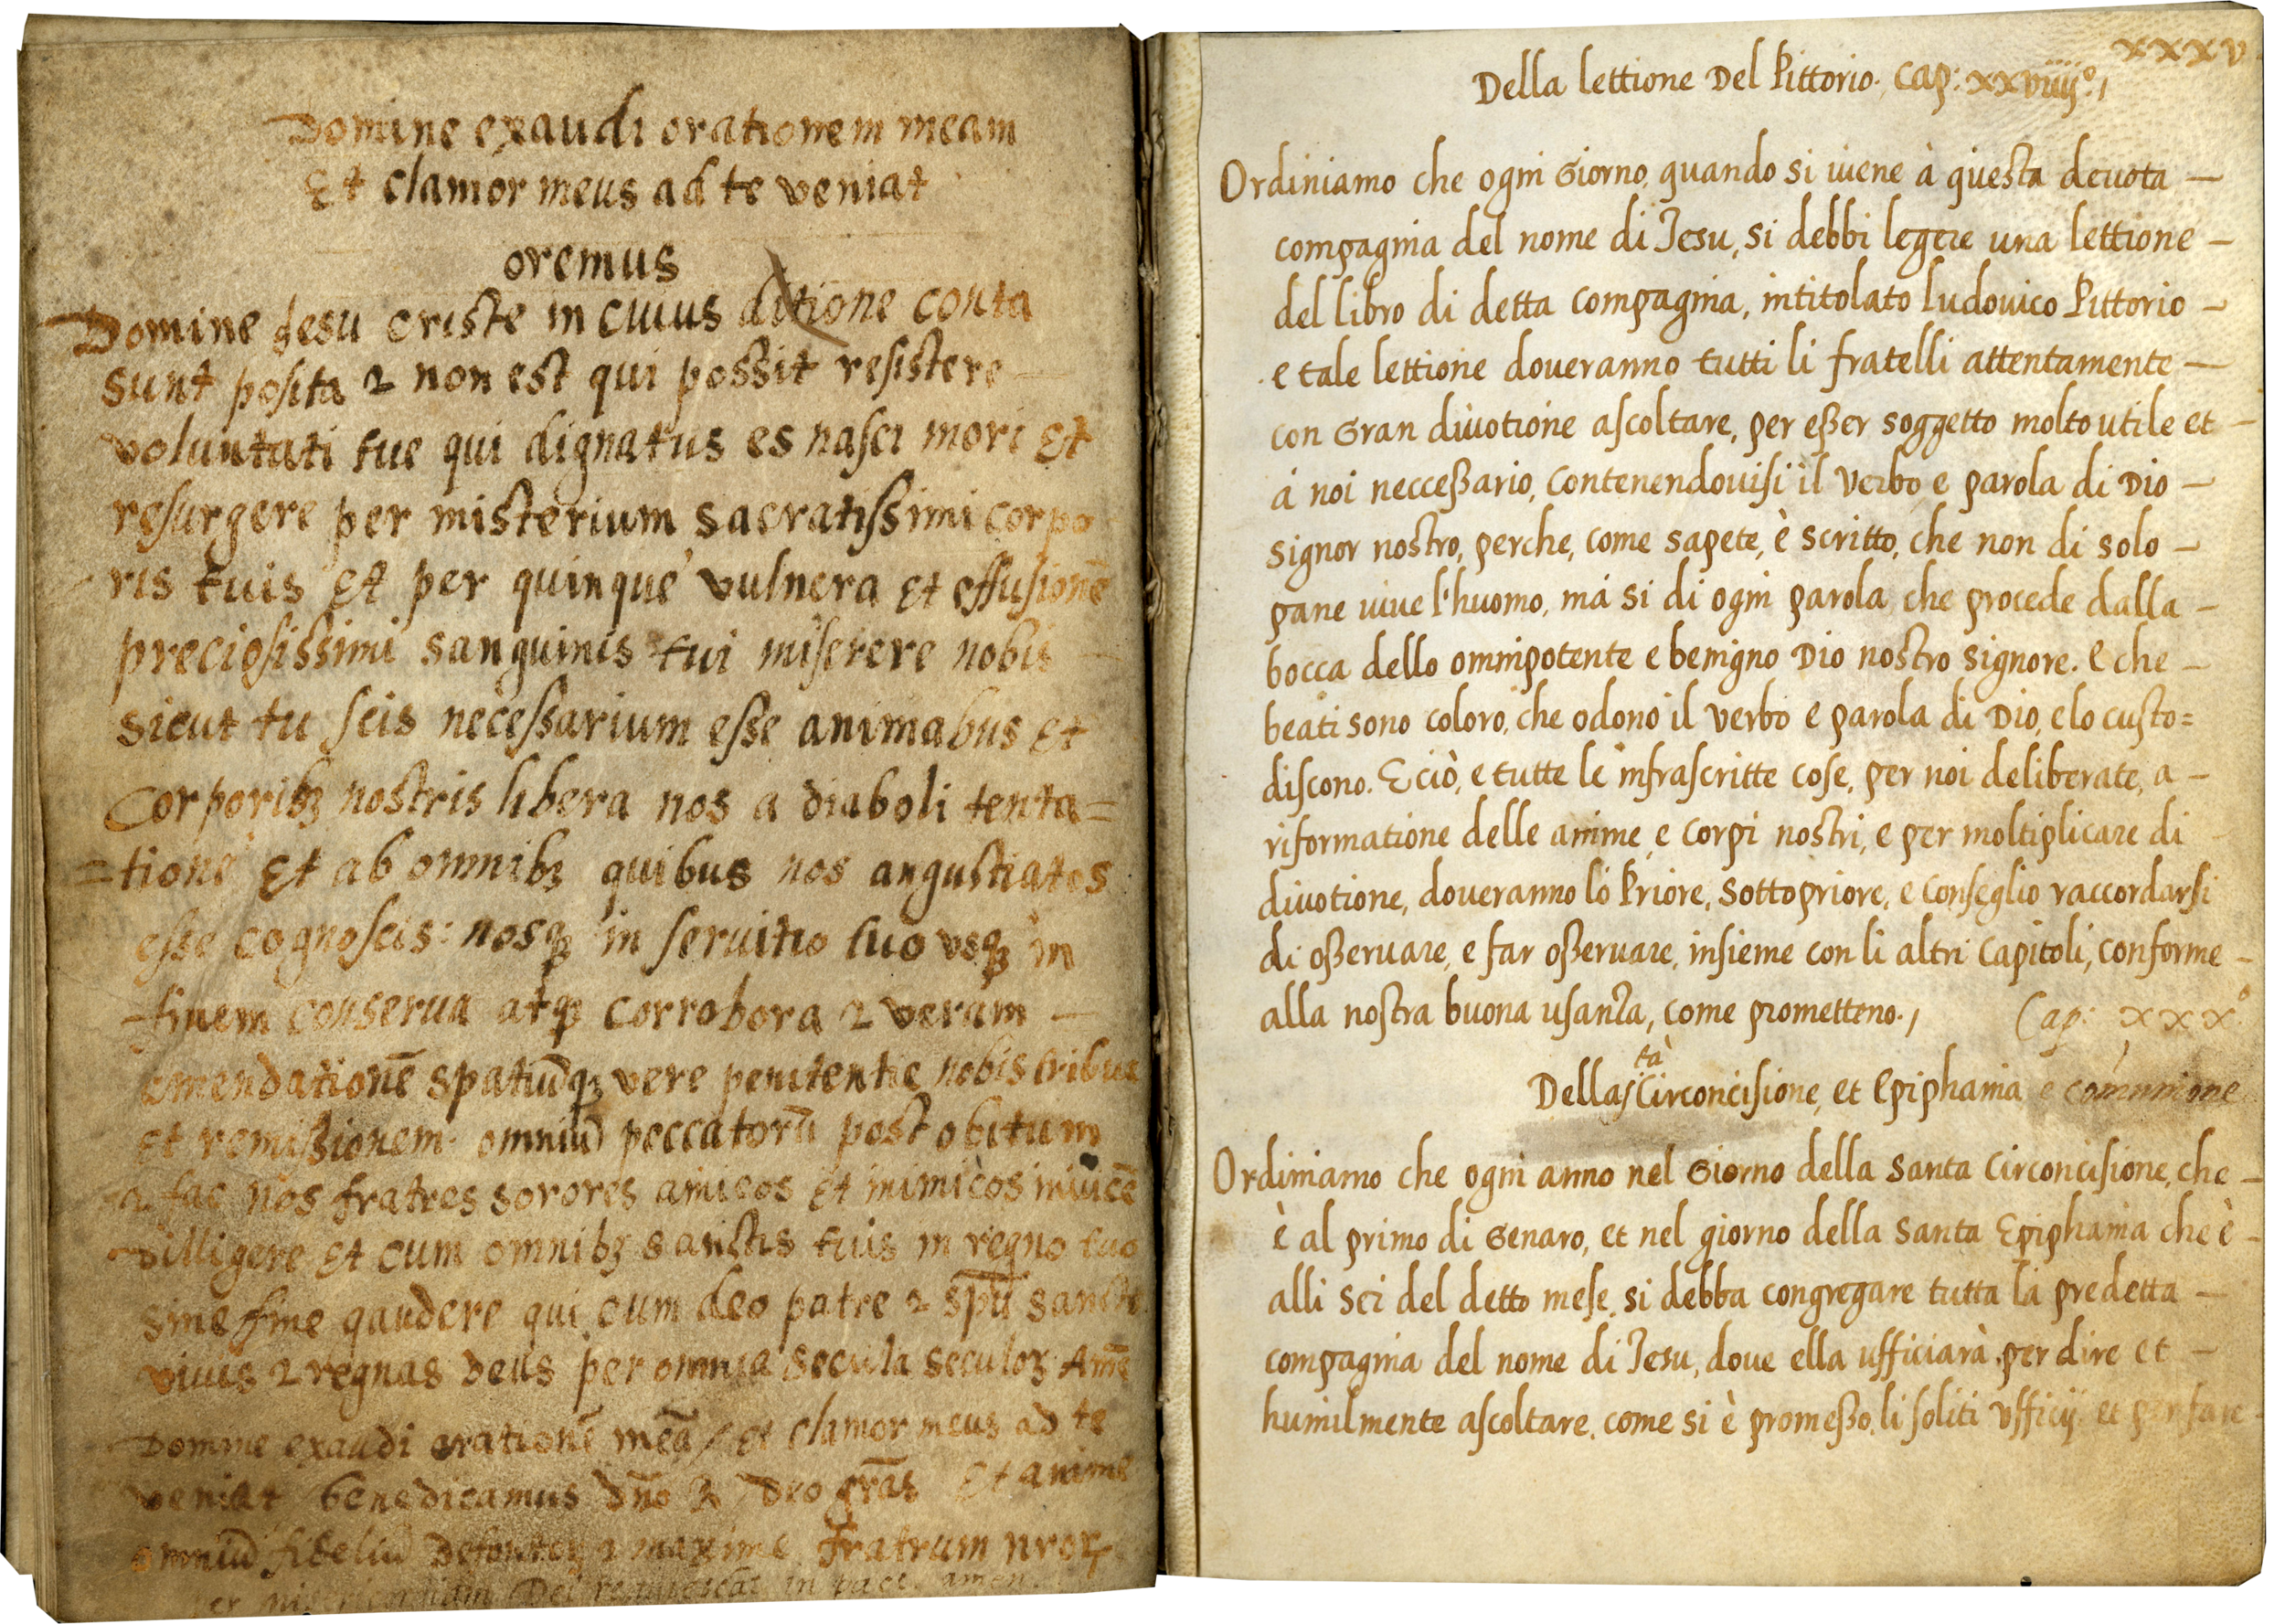 Domine exaudi orationem meam
Et clamor meus ad te veniat
oremus
Domine jesu criste in cuius ditione conta
sunt posita & non est qui possit resistere
voluntati tue qui dignatus es nasci mori Et
resurgere per misterium sacratissimi corpo
ris tuis Et per quinque vulnera Et effusionē
preciosissimi sanguinis tui miserere nobis
sicut tu scis necessarium esse animabus Et
Corporibꝫ nostris libera nos a diaboli tenta=
=tione Et ab omnibꝫ quibus nos angustiates
esse cognoscis: nosqꝫ in seruitio tuo vsqꝫ in
finem conserua atqꝫ corrobora & veram —
emendationē spatiūqꝫ vere penitentie nobis tribue
Et remissionem omniū peccatorū post obitum
& fac nos fratres sorores amicos Et inimicos inuicē
dilligere Et cum omnibꝫ sanctis tuis in regno tuo
sine fine gaudere qui cum deo patre & spū sancto
viuis & regnas Deus per omnia secula seculoꝫ Amē
Domine exaudi orationē meā / Et clamor meus ad te
veniat / benedicamus dn̄o ℞ Deo grās Et anime
omniū fideliū Defunctoꝫ & maxime fratrum nroꝝ
per misericordiam Dei requiescāt in pace. amen.
xxxv
Della lettione Del Pittorio. Cap: xxviiij°,
Ordiniamo che ogni Giorno, quando si uiene à questa deuota —
compagnia del nome di Jesu, si debbi legere una lettione —
del libro di detta compagnia, intitolato Ludouico Pittorio —
e tale lettione doueranno tutti li fratelli attentamente —
con Gran diuotione ascoltare, per eßer soggetto molto utile et —
à noi necceßario, contenendouisi il Verbo e parola di Dio —
signor nostro, perche, come sapete, è scritto, che non di solo —
pane uiue l'huomo, mà si di ogni parola, che procede dalla —
bocca dello omnipotente e benigno Dio nostro signore. E che —
beati sono coloro, che odono il verbo e parola di Dio, e lo custo=
discono. E ciò, e tutte le infrascritte cose, per noi deliberate, a —
riformatione delle anime, e corpi nostri, e per moltiplicare di —
diuotione, doueranno lo Priore, Sottopriore, e Conseglio raccordarsi
di oßeruare, e far oßeruare, insieme con li altri Capitoli, conforme —
alla nostra buona usanza, come prometteno.,
Cap: xxx°
Della sta Circoncisione, et Epiphania e comunione
Ordiniamo che ogni anno nel Giorno della Santa Circoncisione, che —
è al primo di Genaro, et nel giorno della Santa Epiphania che è —
alli sei del detto mese, si debba congregare tutta la predetta —
compagnia del nome di Jesu, doue ella ufficiarà, per dire et —
humilmente ascoltare, come si è promeßo, li soliti Vfficij. et per fare